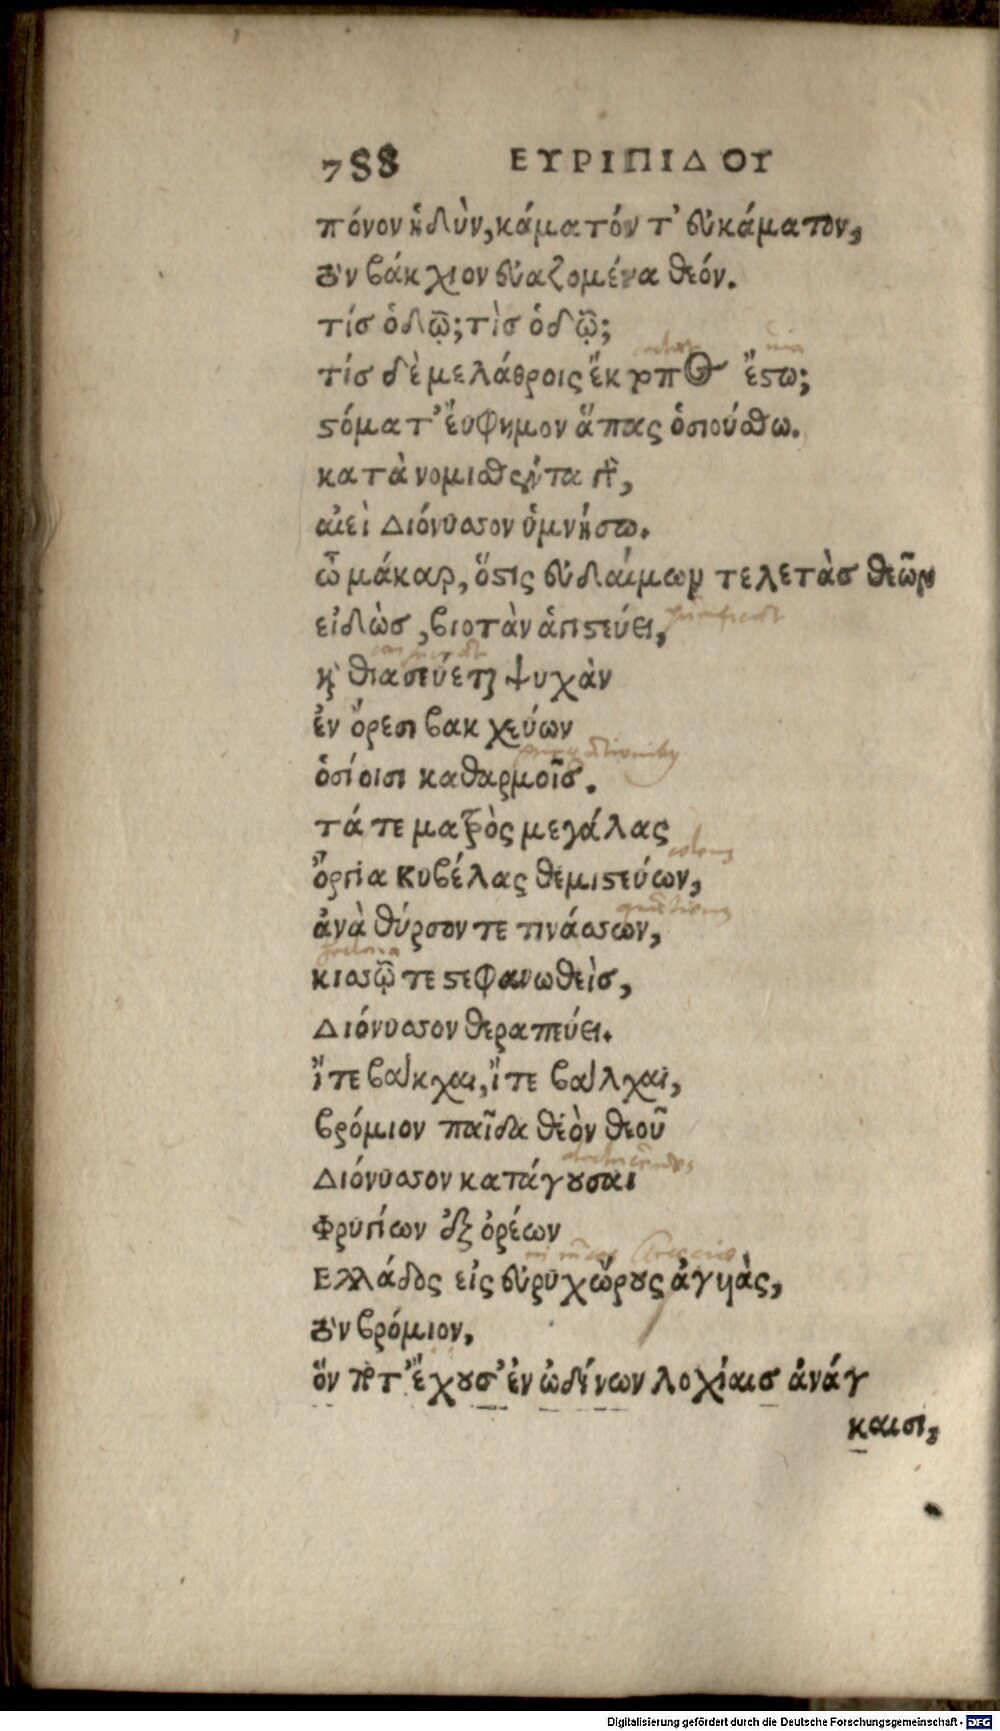 788 ΕΥΡΙΠΙΔΟΥ
πόνον ἡδὺν, κάματόν τ' εὐκάματον,
τὸν βάκχιον εὐαζομένα θεόν.
τίσ ὁδῷ; τὶσ ὁδῷ;
τίσ δὲ μελάθροις ἔκτοπος ἔστω;
στόμα τ' ἔυφημον ἅπας ὁσιούσθω.
κατὰ νομισθέντα γὰρ,
αἰεὶ Διόνυσσον ὑμνήσω.
ὦ μάκαρ, ὅστις εὐδαίμων τελετὰσ θεῶν
εἰδὼσ, βιοτὰν ἁγιστεύει,
καὶ θιασεύεται ψυχὰν
ἐν ὄρεσι βακχεύων
ὁσίοισι καθαρμοῖσ.
τά τε ματρὸς μεγάλας
ὄργια Κυβέλας θεμιστεύων,
ἀνὰ θύρσον τε τινάσσων,
κισσῷ τε στεφανωθεὶσ,
Διόνυσσον θεραπεύει.
ἴτε βάκχαι, ἴτε βάκχαι,
βρόμιον παῖδα θεὸν θεοῦ
Διόνυσσον κατάγουσαι
Φρυγίων ἐξ ὀρέων
Ελλάδος εἰς εὐρυχώρους ἀγυιὰς,
τὸν βρόμιον,
ὅν ποτ' ἔχουσ' ἐν ὠδίνων λοχίαισ ἀνάγ
καισι,
Digitalisierung gefördert durch die Deutsche Forschungsgemeinschaft - DFG